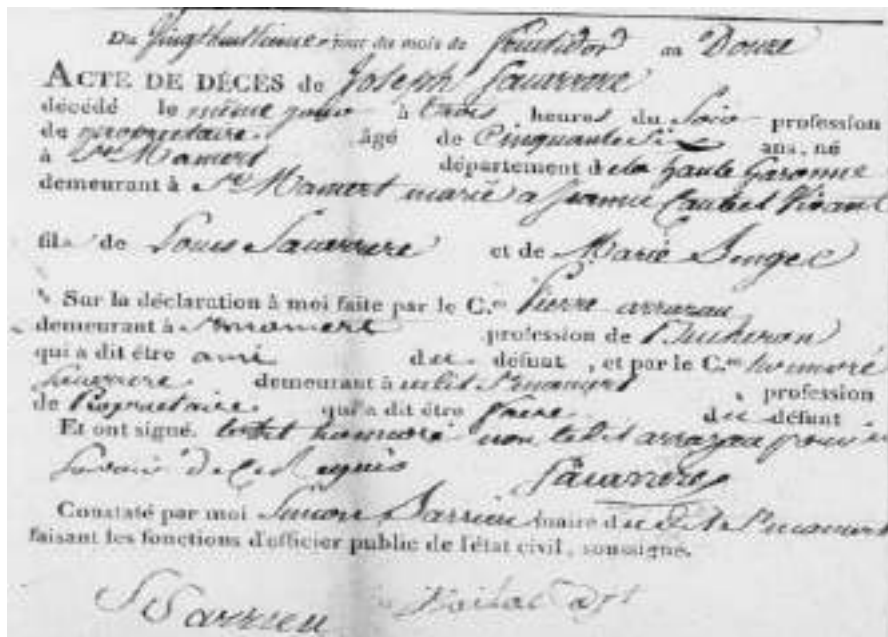 Du Vingthuitieme jour du mois de fructidor an Douze
ACTE DE DÉCES de Joseph Sauverre
décédé le même jour à trois heures du Soir profession
de propriétaire âgé de Cinquante Six ans, né
à St Mamert département de la haute Garonne
demeurant à St Mamert marié a Jeanne Caubet Vivant
fils de Louis Sauverre et de Marie
Sur la déclaration à moi faite par le C.en Pierre arrazau
demeurant à St mamert profession de Bucheron
qui a dit être ami du défunt , et par le C.en honnoré
Sauverre demeurant à udit St mamert profession
de Propriétaire qui a dit être frere du défunt
Et ont signé. ledit honnoré non ledit arrazau pour
Savoir de ce Requis
Sauverre
Constaté par moi Simon Barrieu maire dudit St mamert
faisant les fonctions d'officier public de l'état civil, soussigné.